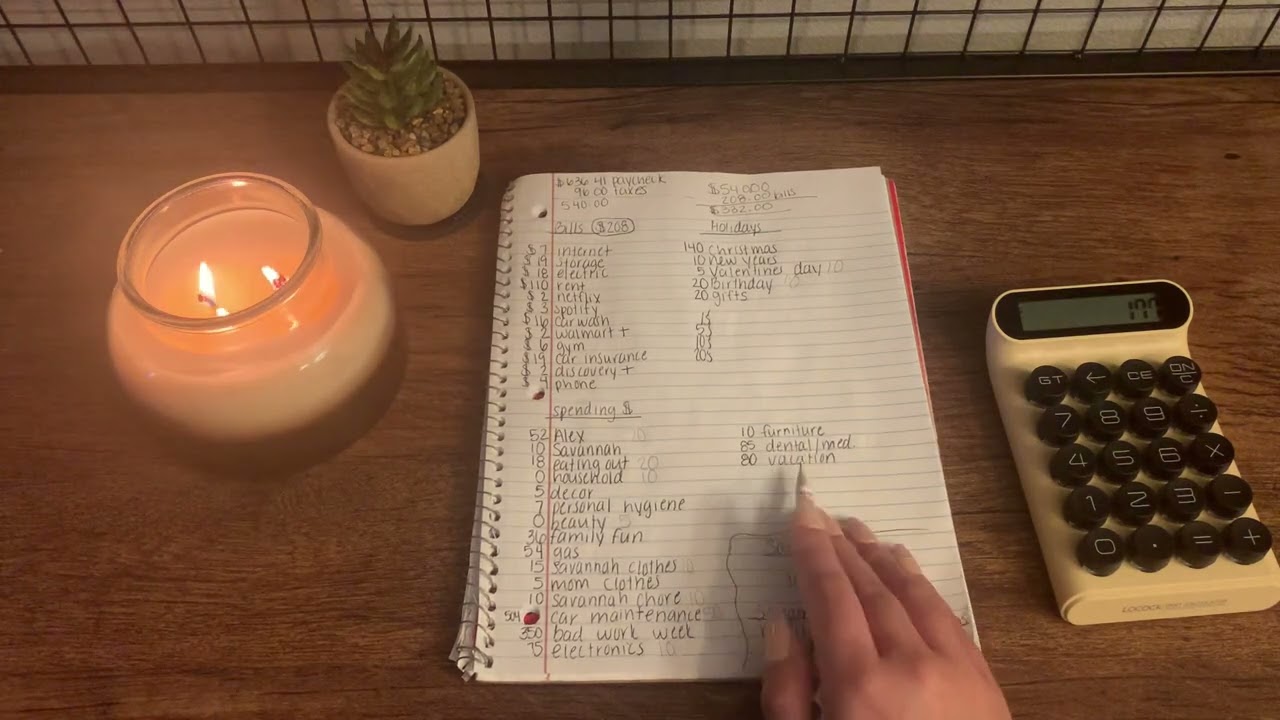 $636.41 paycheck
96.00 taxes
540.00
$540.00
208.00 bills
Bills $208
Holidays
$7 internet
$19 storage
$18 electric
$110 rent
$2 netflix
$3 spotify
$16 car wash
$2 walmart +
$6 gym
$19 car insurance
$2 discovery +
$4 phone
140 christmas
10 new years
5 valentines day 10
20 birthday
20 gifts
1s
5s
10s
20s
spending $
52 Alex 10
10 Savannah
18 eating out 20
0 household 10
5 decor
7 personal hygiene
0 beauty 5
36 family fun
54 gas
15 Savannah clothes 10
5 mom clothes
10 Savannah chore 10
504 car maintenance
350 bad work week
75 electronics 10
10 furniture
85 dental/med.
80 vacation
GT ← CE ON/C
7 8 9 ÷
4 5 6 ×
1 2 3 −
0 . = +
LOCOCK